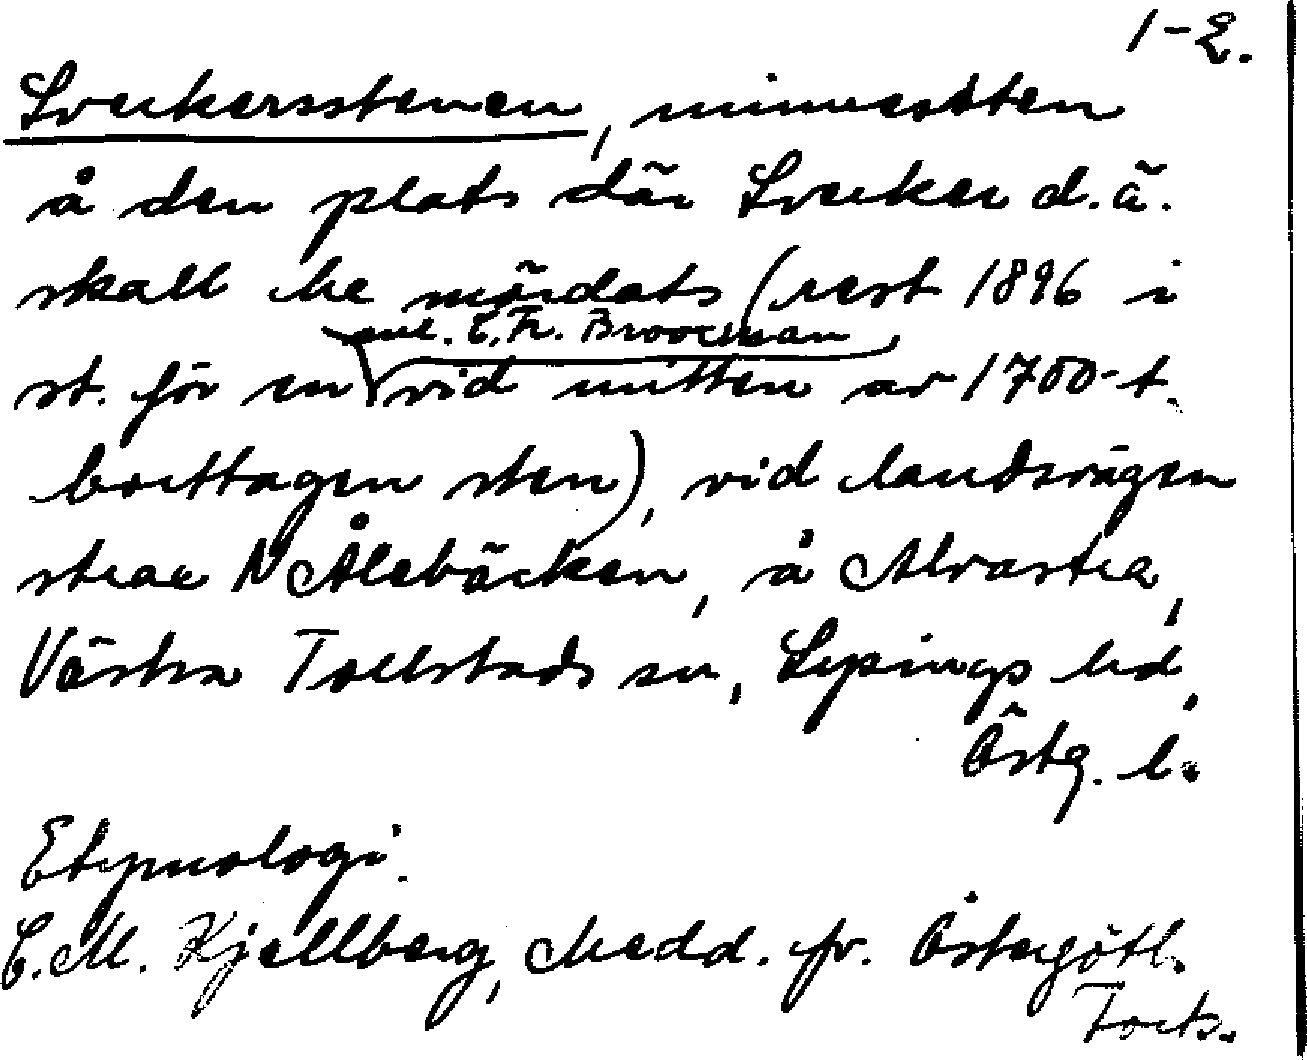 1-2.
Sverkersstenen, minnessten
å den plats där Sverker d.ä.
skall ha mördats (rest 1896 i
enl. C. Fr. Broocman
st. för en vid mitten av 1700-t.
borttagen sten), vid landsvägen
strax N Ålebäcken, å Alvastra,
Västra Tollstads sn, Lysings hd,
Östg. l.
Etymologi.
C.M. Kjellberg, Medd. fr. Östergötl.
Forts.